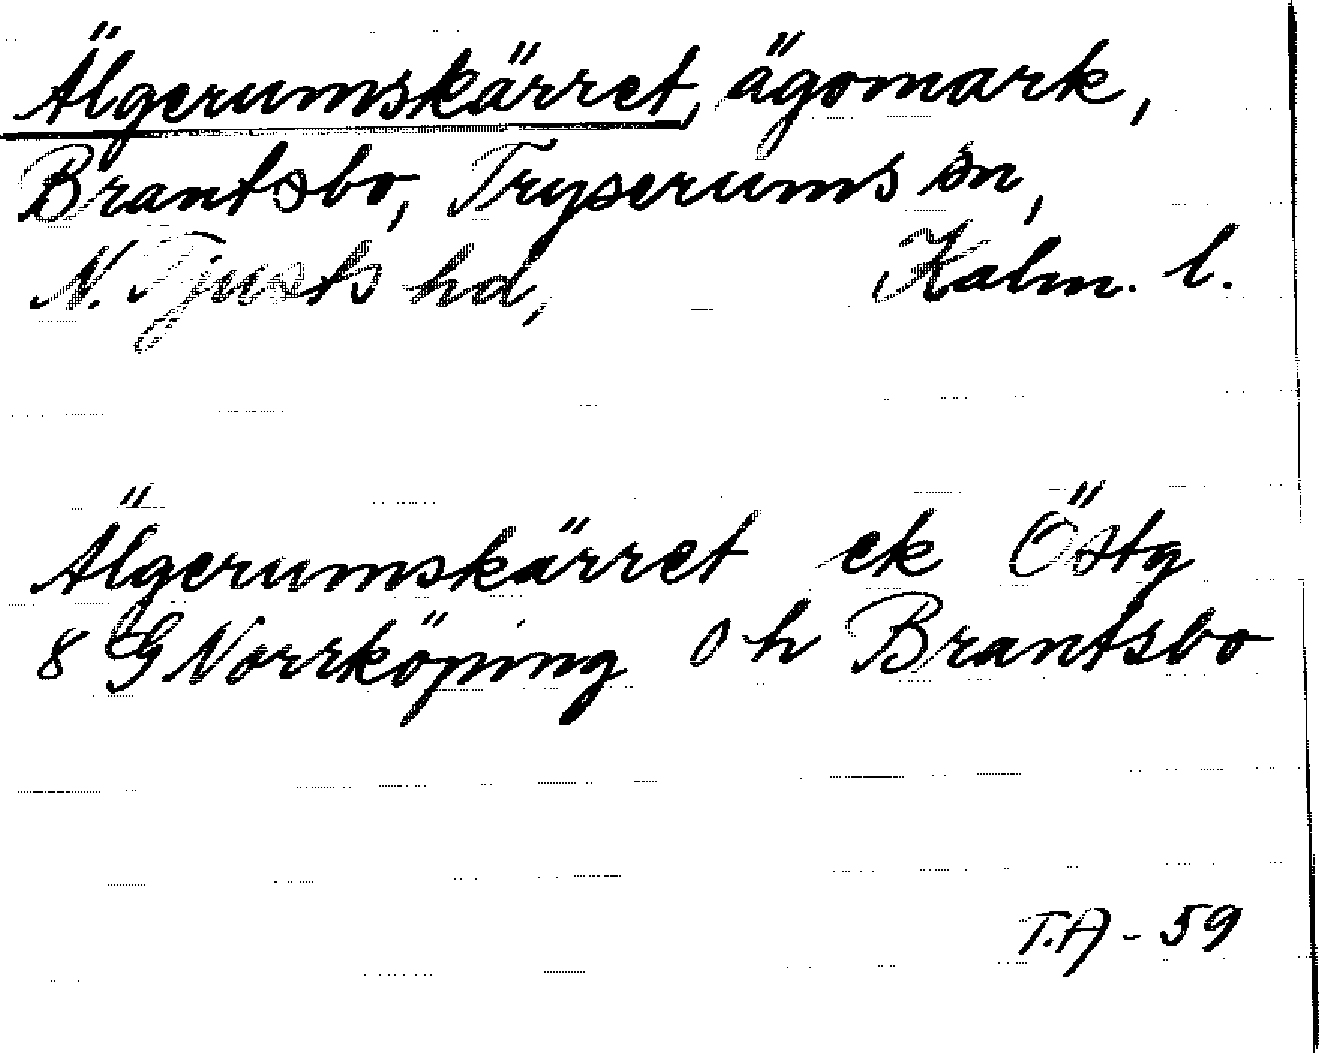 Älgerumskärret, ägomark,
Brantsbo, Tryserums sn,
N. Tjusts hd, Kalm. l.
Älgerumskärret ek Östg
8 G Norrköping 0 h Brantsbo
T.A - 59